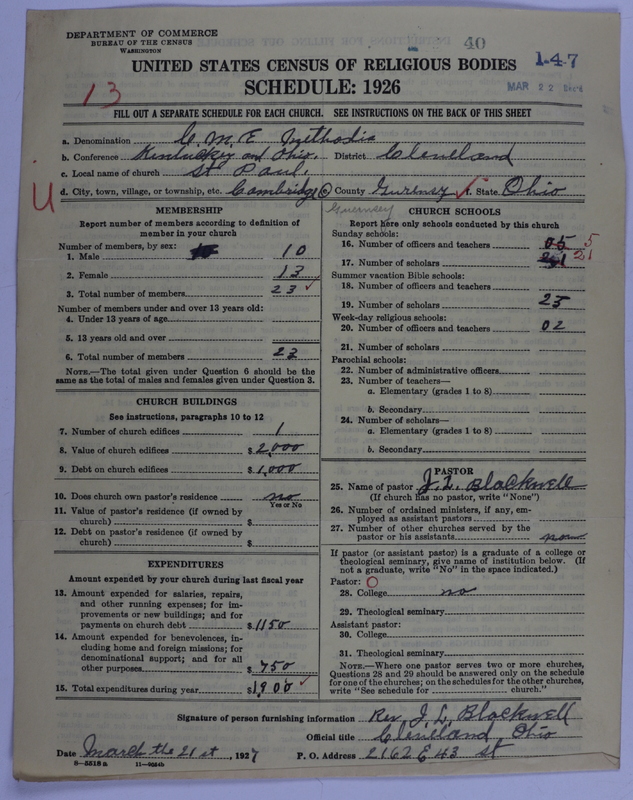 DEPARTMENT OF COMMERCE
BUREAU OF THE CENSUS
WASHINGTON
40
1-4-7
MAR 22
UNITED STATES CENSUS OF RELIGIOUS BODIES
SCHEDULE: 1926
13
FILL OUT A SEPARATE SCHEDULE FOR EACH CHURCH. SEE INSTRUCTIONS ON THE BACK OF THIS SHEET
a. Denomination C. M. E. Methodis
b. Conference Kentuckey and Ohio. District Cleveland
c. Local name of church St Paul.
U
d. City, town, village, or township, etc. Cambridge e. County Gurensy f. State Ohio
Guernsey
MEMBERSHIP
Report number of members according to definition of
member in your church
Number of members, by sex:
1. Male 10
2. Female 13
3. Total number of members 23
Number of members under and over 13 years old:
4. Under 13 years of age
5. 13 years old and over
6. Total number of members 23
NOTE.—The total given under Question 6 should be the
same as the total of males and females given under Question 3.
CHURCH BUILDINGS
See instructions, paragraphs 10 to 12
7. Number of church edifices 1
8. Value of church edifices $ 2,000
9. Debt on church edifices $ 1,000
10. Does church own pastor's residence no
Yes or No
11. Value of pastor's residence (if owned by
church) $
12. Debt on pastor's residence (if owned by
church) $
EXPENDITURES
Amount expended by your church during last fiscal year
13. Amount expended for salaries, repairs,
and other running expenses; for im-
provements or new buildings; and for
payments on church debt $ 1150
14. Amount expended for benevolences, in-
cluding home and foreign missions; for
denominational support; and for all
other purposes $ 750
15. Total expenditures during year $ 1900
CHURCH SCHOOLS
Report here only schools conducted by this church
Sunday schools:
16. Number of officers and teachers 05 5
17. Number of scholars 21
Summer vacation Bible schools:
18. Number of officers and teachers
19. Number of scholars 25
Week-day religious schools:
20. Number of officers and teachers 02
21. Number of scholars
Parochial schools:
22. Number of administrative officers
23. Number of teachers—
a. Elementary (grades 1 to 8)
b. Secondary
24. Number of scholars—
a. Elementary (grades 1 to 8)
b. Secondary
PASTOR
25. Name of pastor J. L. Blackwell
(If church has no pastor, write "None")
26. Number of ordained ministers, if any, em-
ployed as assistant pastors
27. Number of other churches served by the
pastor or his assistants
If pastor (or assistant pastor) is a graduate of a college or
theological seminary, give name of institution below. (If
not a graduate, write "No" in the space indicated.)
Pastor: O
28. College no
29. Theological seminary
Assistant pastor:
30. College
31. Theological seminary
NOTE.—Where one pastor serves two or more churches,
Questions 28 and 29 should be answered only on the schedule
for one of the churches; on the schedules for the other churches,
write "See schedule for church."
Signature of person furnishing information Rev J. L. Blackwell
Official title Cleveland, Ohio
Date March the 21st, 1927 P. O. Address 2162 E 43 st
8—5518a 11—9024b